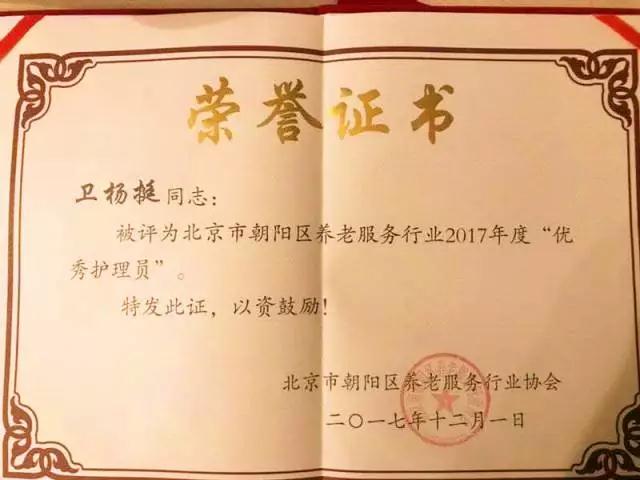 荣誉证书
卫杨挺同志：
被评为北京市朝阳区养老服务行业2017年度“优
秀护理员”。
特发此证，以资鼓励！
北京市朝阳区养老服务行业协会
二〇一七年十二月一日